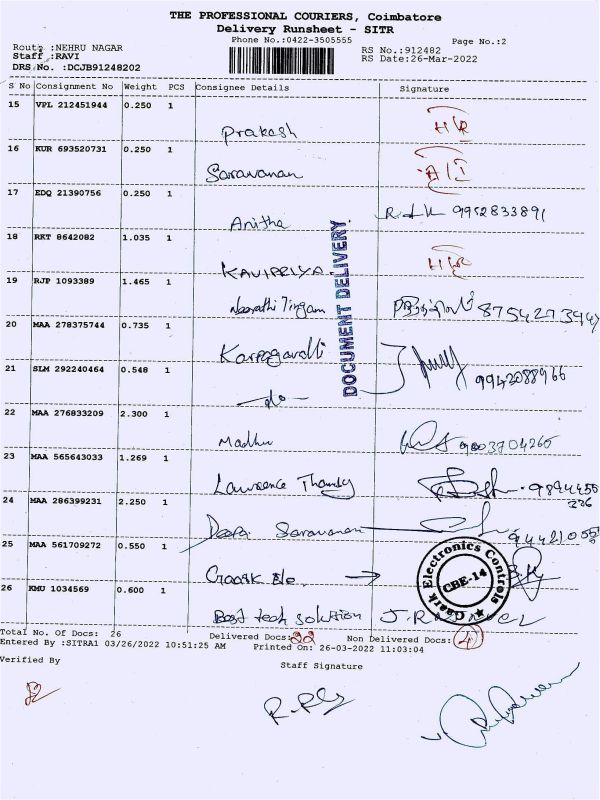 THE PROFESSIONAL COURIERS, Coimbatore
Delivery Runsheet - SITR
Phone No.:0422-3505555
Page No.:2
Route :NEHRU NAGAR
RS No.:912482
Staff :RAVI
RS Date:26-Mar-2022
DRS No. :DCJB91248202
S No Consignment No Weight PCS Consignee Details Signature
15 VPL 212451944 0.250 1
Prakash
16 KUR 693520731 0.250 1
Saravanan
17 EDQ 21390756 0.250 1
Anitha 9952833891
18 RKT 8642082 1.035 1
KAVIPRIYA
19 RJP 1093389 1.465 1
20 MAA 278375744 0.735 1
21 SLM 292240464 0.548 1
9942088966
-do-
22 MAA 276833209 2.300 1
Madhu 9003704265
23 MAA 565643033 1.269 1
Lawrence
24 MAA 286399231 2.250 1
Deepa Saravanan
25 MAA 561709272 0.550 1
Gaark Ele.
26 KMU 1034569 0.600 1
Best tech solution
DOCUMENT DELIVERY
Gaark Electronics Controls
CBE-14
Total No. Of Docs: 26 Delivered Docs:22 Non Delivered Docs:4
Entered By :SITRA1 03/26/2022 10:51:25 AM Printed On: 26-03-2022 11:03:04
Verified By
Staff Signature